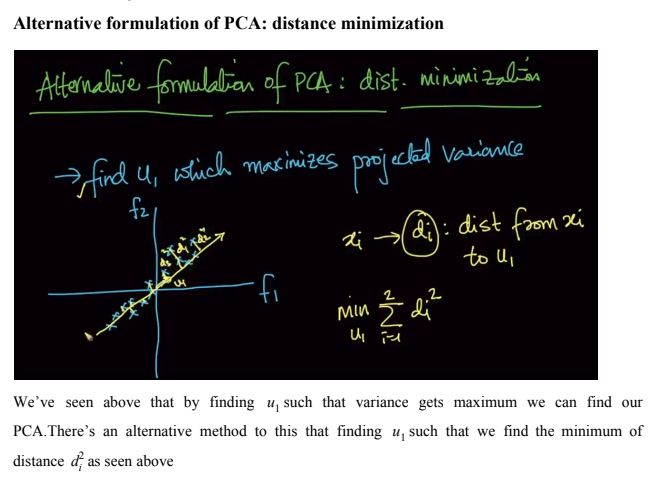 Alternative formulation of PCA: distance minimization
Alternative formulation of PCA : dist. minimization
→ find u₁ which maximizes projected variance
f₂
xᵢ → dᵢ : dist from xᵢ
to u₁
d₃ dᵢ d₂
u₁
f₁
min Σ dᵢ²
u₁ i=1
2
We've seen above that by finding u₁ such that variance gets maximum we can find our
PCA.There's an alternative method to this that finding u₁ such that we find the minimum of
distance dᵢ² as seen above